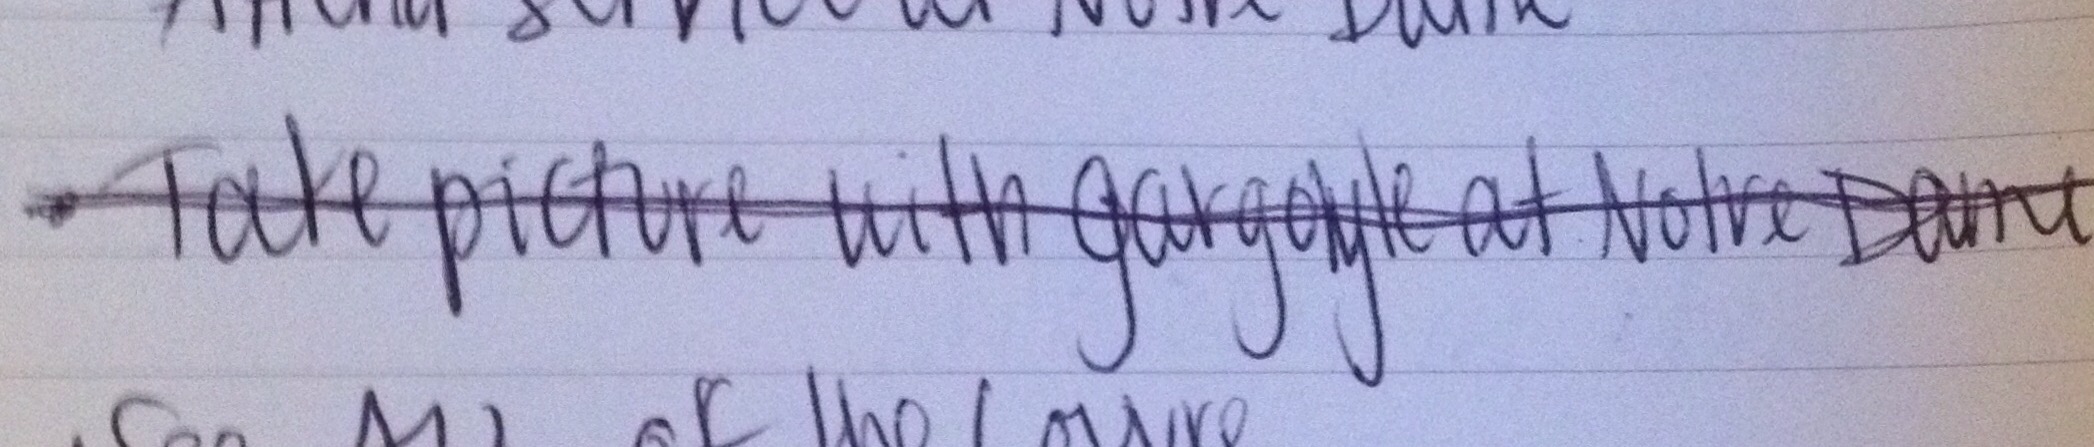 Attend service at Notre Dame
Take picture with gargoyle at Notre Dame
See all of the Louvre